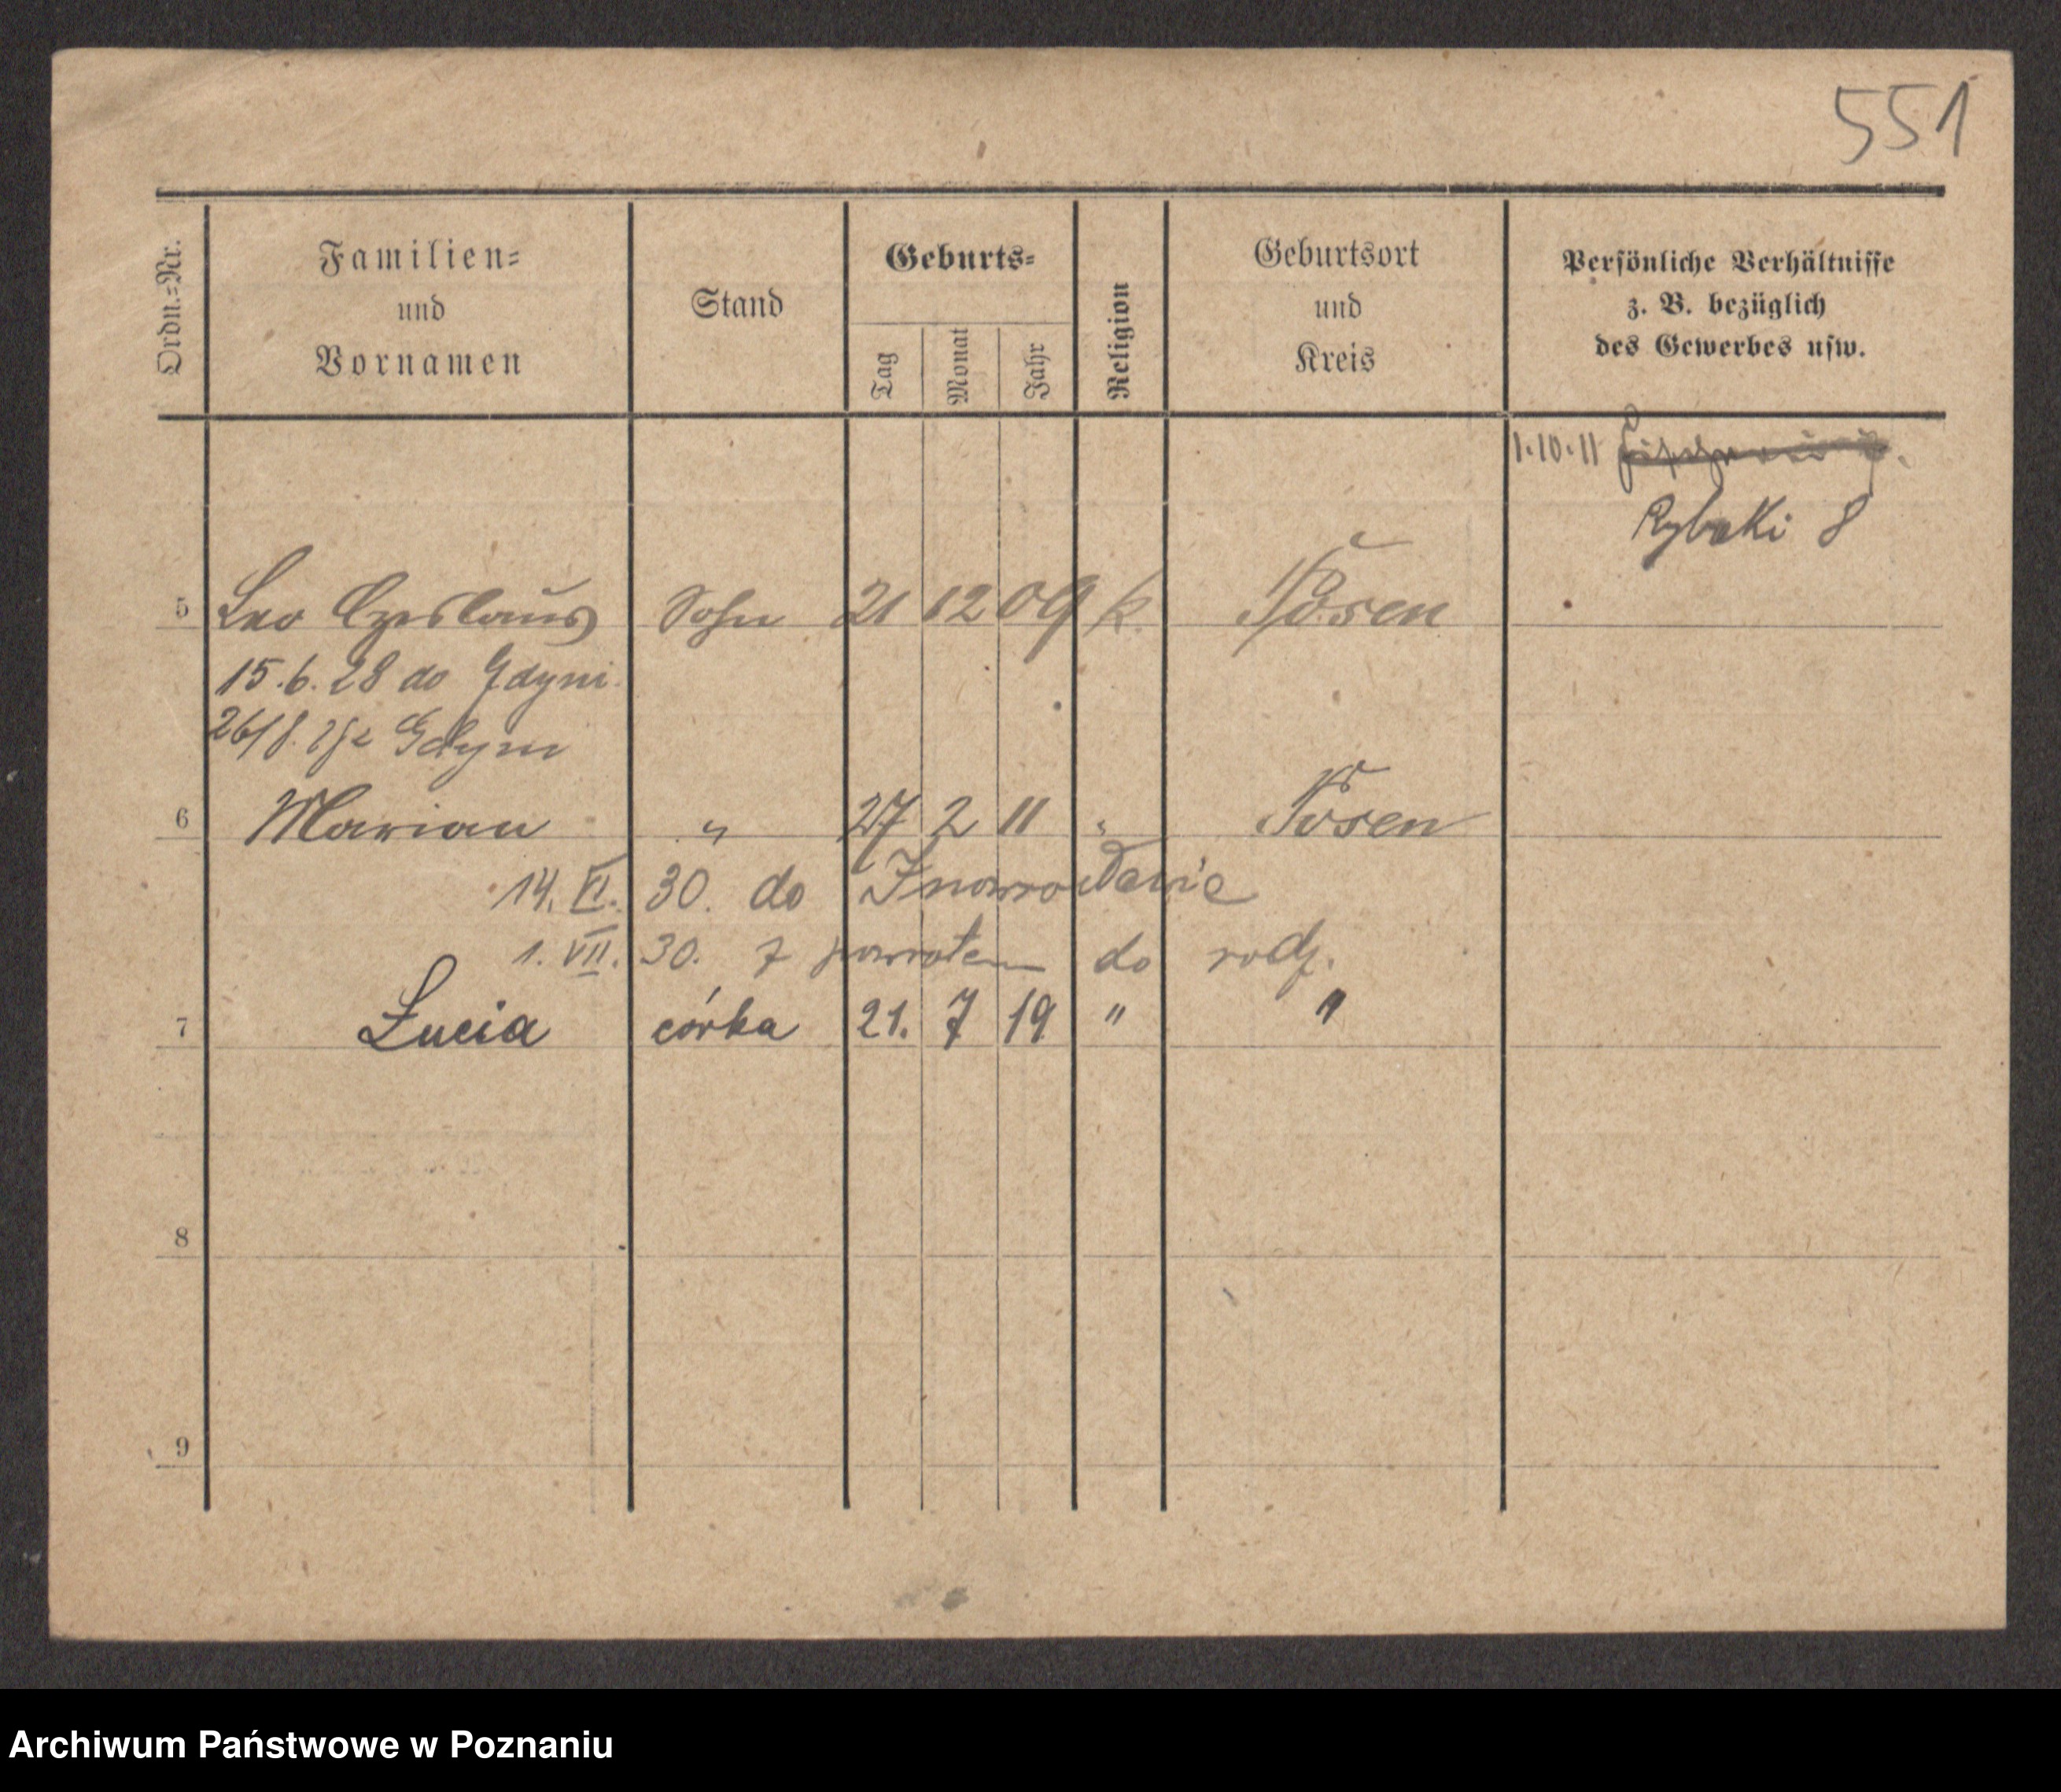 551
Ordn.=Nr.
Familien=
und
Vornamen
Stand
Geburts=
Tag
Monat
Jahr
Religion
Geburtsort
und
Kreis
Persönliche Verhältnisse
z. B. bezüglich
des Gewerbes usw.
1.10.11
Rybaki 8
5 Leo Czeslaus Sohn 21 12 09 k. Posen
15.6.28 do Gdyni
26/8. Gdyni
6 Marian " 27 2 11 " Posen
14. VI. 30. do Inowrocławie
1. VII. 30. z powrotem do rodz.
7 Łucia córka 21. 7 19 " "
8
9
Archiwum Państwowe w Poznaniu